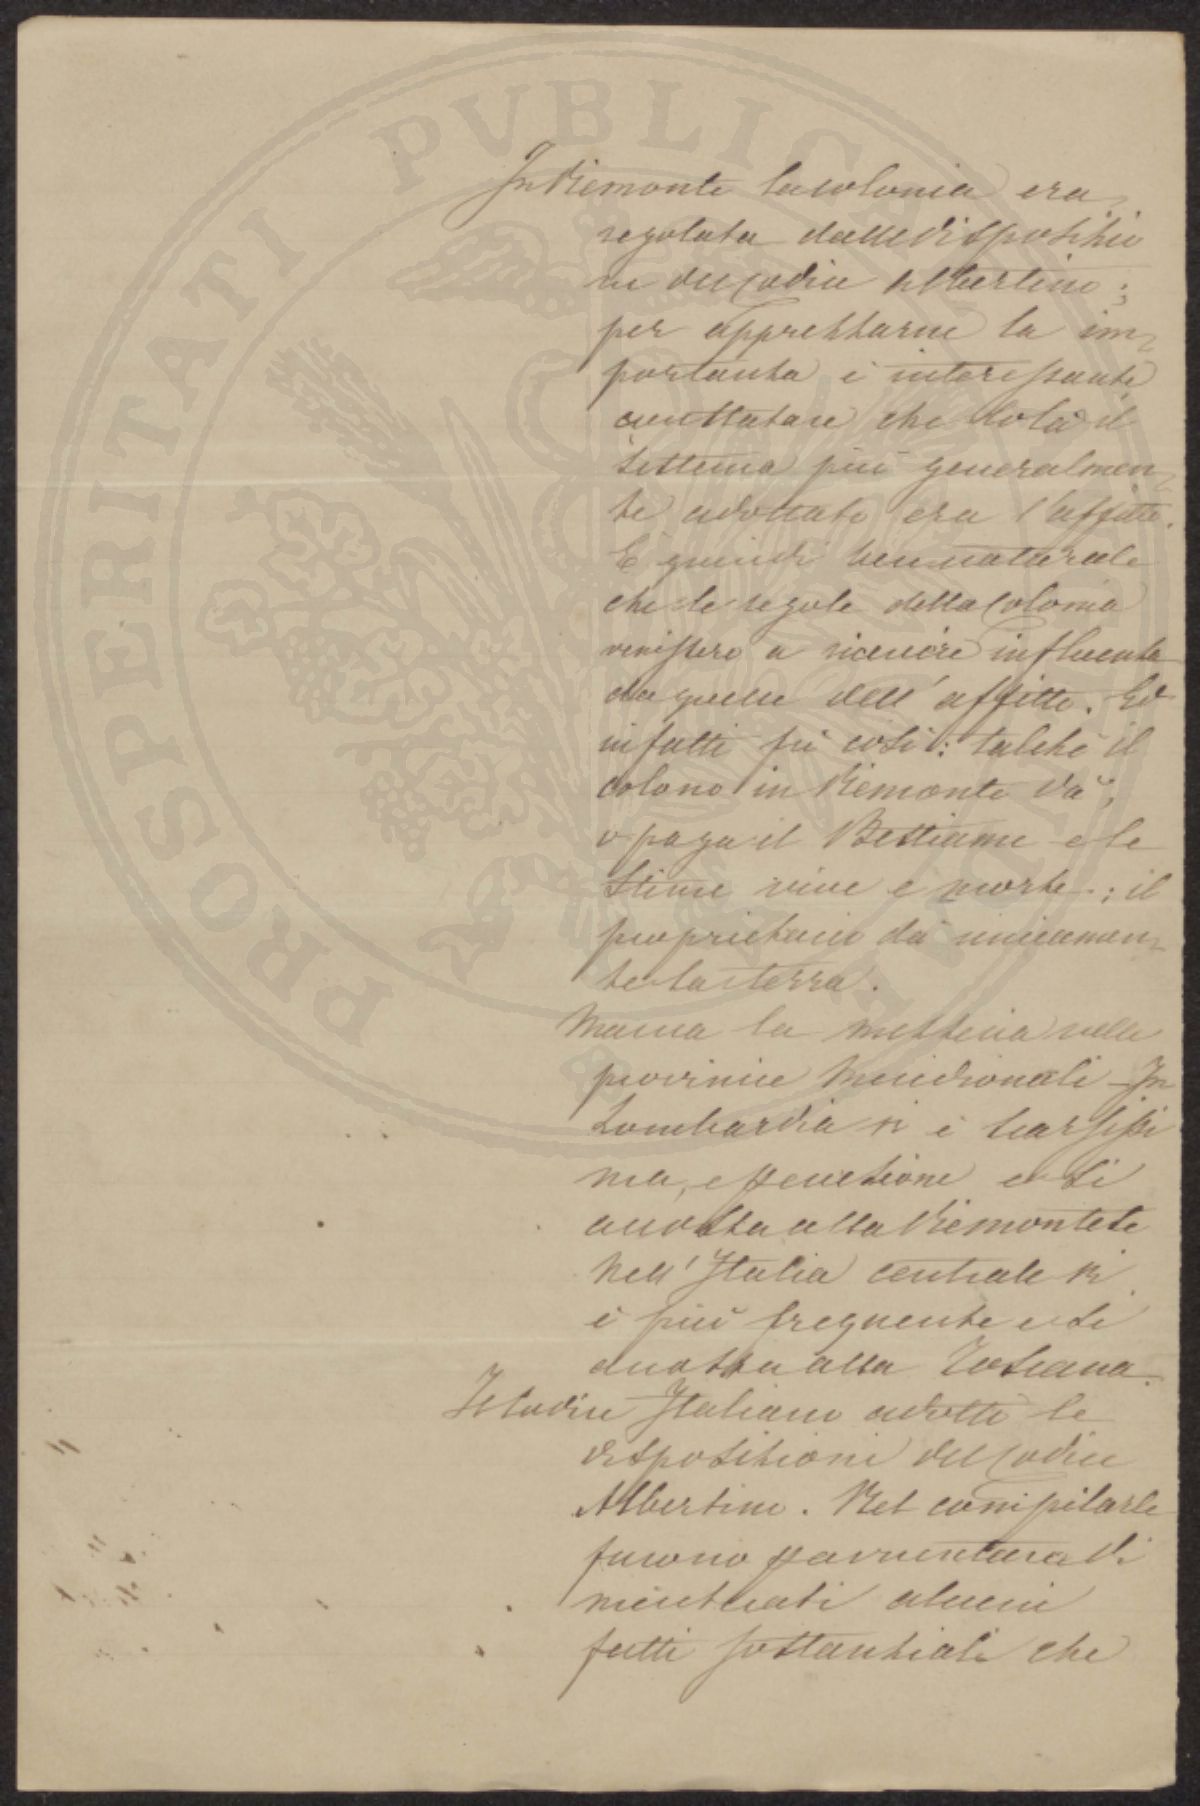 In Piemonte la colonia era
regolata dalle disposizio
ni del Codice Albertino;
per apprezzarne la im-
portanza è interessante
constatare che colà il
sistema più generalmen-
te adottato era l'affitto.
È quindi ben naturale
che le regole della colonia
venissero a ricevere influenza
da quelle dell'affitto. Ed
infatti fu così: talchè il
colono in Piemonte dà,
o paga il Bestiame e le
Stime vive e morte; il
proprietario dà unicamen-
te la terra.
Manca la mezzeria nelle
provincie Meridionali - In
Lombardia vi è scarsissi
ma, eccezione e si
accosta alla Piemontese
Nell'Italia centrale vi
è più frequente e si
accosta alla Toscana.
Il Codice Italiano adottò le
disposizioni del Codice
Albertino. Nel compilarle
furono per avventura di
menticati alcuni
fatti sostanziali che
PROSPERITATI PVBLICAE